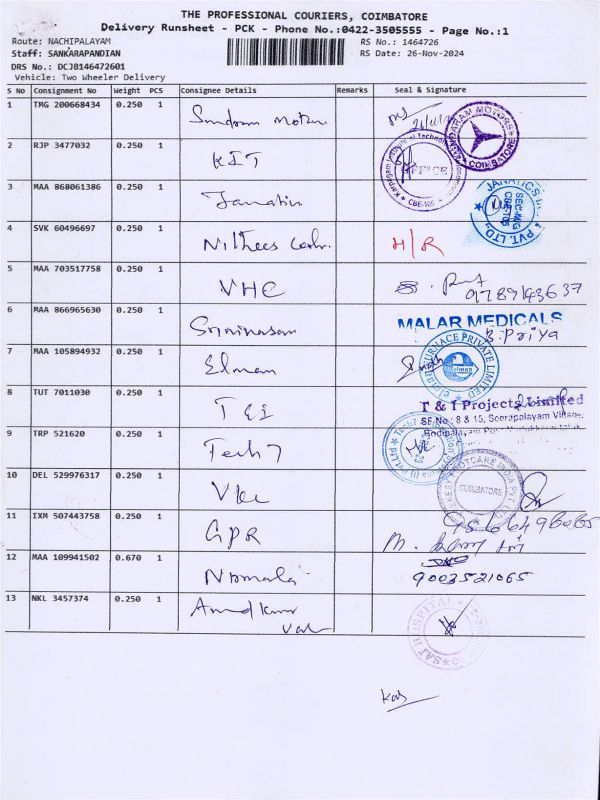 THE PROFESSIONAL COURIERS, COIMBATORE
Delivery Runsheet - PCK - Phone No.:0422-3505555 - Page No.:1
Route: NACHIPALAYAM
RS No.: 1464726
Staff: SANKARAPANDIAN
RS Date: 26-Nov-2024
DRS No.: DCJB146472601
Vehicle: Two Wheeler Delivery
S No Consignment No Weight PCS Consignee Details Remarks Seal & Signature
1 TMG 200668434 0.250 1 Sundaram Motors
SUNDARAM MOTORS COIMBATORE
2 RJP 3477032 0.250 1 KIT
Karpagam Institute of Technology OFFICE CBE-105
3 MAA 868061386 0.250 1 Janatics
JANATICS PVT. LTD.
4 SVK 60496697 0.250 1 Nithees H/R
5 MAA 703517758 0.250 1 VHC
9789143637
6 MAA 866965630 0.250 1 Srinivasan
MALAR MEDICALS
B. Priya
7 MAA 105894932 0.250 1 Elman
FURNACE PRIVATE LIMITED
8 TUT 7011030 0.250 1 T & I
T & I Projects Limited
SF No: 8 & 15, Seerapalayam Village,
9 TRP 521620 0.250 1 Tech 7
Tech7
10 DEL 529976317 0.250 1 VKC
FOOTCARE INDIA PVT LTD COIMBATORE
11 IXM 507443758 0.250 1 GPR
12 MAA 109941502 0.670 1 Nirmala
9003521065
13 NKL 3457374 0.250 1 Anand Kumar
HOSPITAL